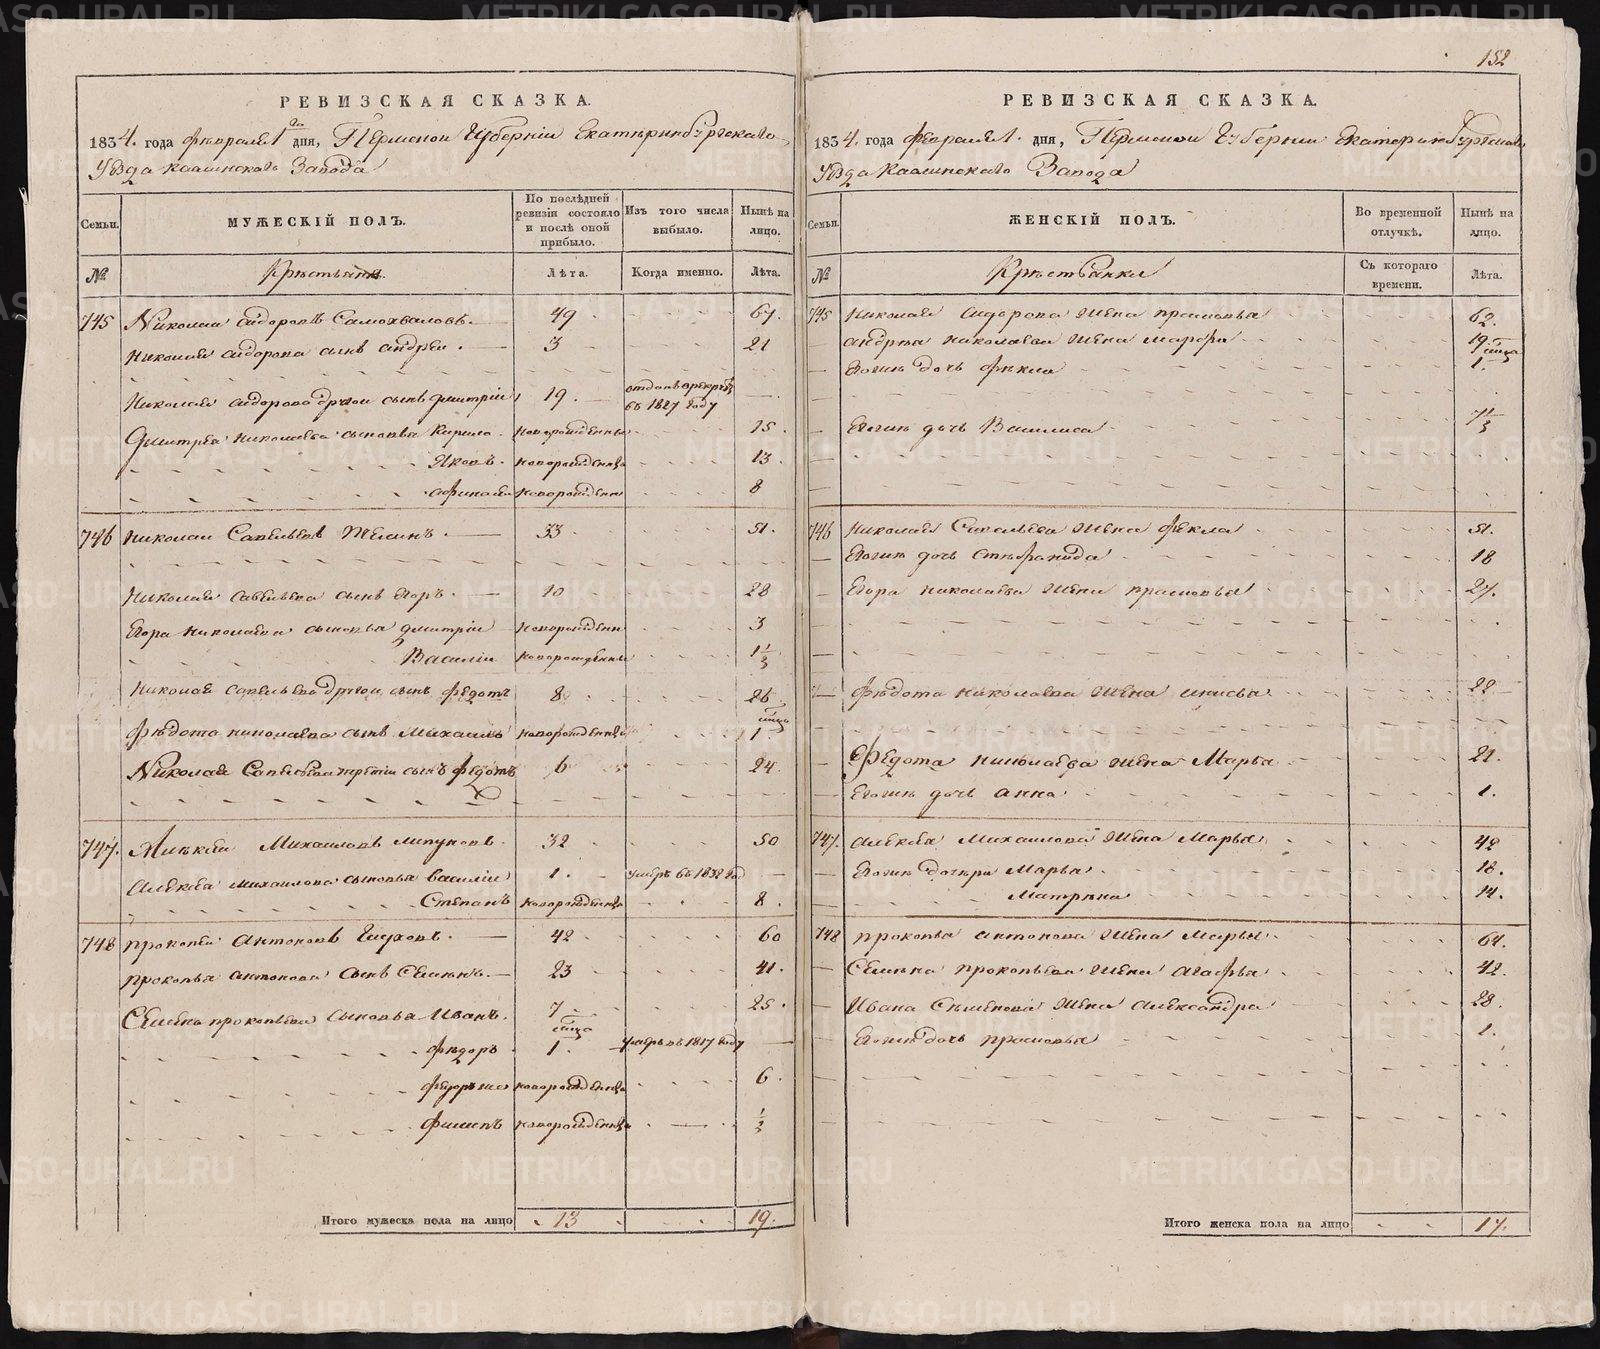 152
РЕВИЗСКАЯ СКАЗКА.
1834. года февраля 1 го дня, Пермской Губернiи Екатеринбургскаго
Уѣзда Каслинскаго Завода
Семьи.
МУЖЕСКIЙ ПОЛЪ.
По послѣдней ревизiи состояло и послѣ оной прибыло.
Изъ того числа выбыло.
Нынѣ на лицо.
№
Крестьяне.
Лѣта.
Когда именно.
Лѣта.
745 Николай Сидоровъ Самохваловъ. 49 67.
Николая Сидорова сынъ Андрей. 3 21
Николая Сидорова другой сынъ Дмитрiй 19. отданъ в рекруты въ 1827 году
Дмитрея Николаева сыновья Кирило. новорожденны 15.
Яковъ. новорожденны 13.
Афонасей новорожденны 8
746 Николай Савельевъ 33 51.
Николая Савельева сынъ Егоръ. 10 28
Егора Николаева сыновья Дмитрiй новорожденн 3
Василiи новорожденны 1 1/3
Николая Савельева другой сынъ Федотъ 8 26
Федота Николаева сынъ Михайло новорожденны 1 мца
Николая Савельева третiй сынъ Федотъ 6 24
747. Алексей Михайловъ 32 50
Алексея Михайлова сыновья Василiи 1. умеръ въ 1832 год
Степанъ новорожденны 8.
748 Прокопей Антоновъ Глуховъ. 42 60
Прокопья Антонова сынъ Семенъ. 23 41.
Семена Прокопьева сыновья Иванъ. 7 25.
Федоръ 1. мца умеръ въ 1817 году
новорожденны 6.
Филипъ новорожденны 1/2
Итого мужеска пола на лицо 13 19.
РЕВИЗСКАЯ СКАЗКА.
1834. года февраля 1. дня, Пермской Губернiи Екатеринбургскаго
Уѣзда Каслинскаго Завода
Семьи.
ЖЕНСКIЙ ПОЛЪ.
Во временной отлучкѣ.
Нынѣ на лицо.
№
Крестьянки
Съ котораго времени.
Лѣта.
745 Николая Сидорова жена Прасковья 62.
Андрея Николаева жена Марфа 19.
Егожъ дочь Фекла 1. мца
Егожъ дочь Василиса 7 1/3
746 Николая Савельева жена Фекла 51.
Егожъ дочь Стефанида 18
Егора Николаева жена Прасковья 27.
Федота Николаева жена 22
Федота Николаева жена Марья 21.
Егожъ дочь Анна 1.
747. Алексея Михайлова жена Марья 48
Егожъ дочери Марья 18.
Матрена 14.
748 Прокопья Антонова жена Марья 67.
Семена Прокопьева жена Агафья 42.
Ивана Семенова жена Александра 28.
Егожъ дочь Прасковья 1.
Итого женска пола на лицо 17.
METRIKI.GASO-URAL.RU